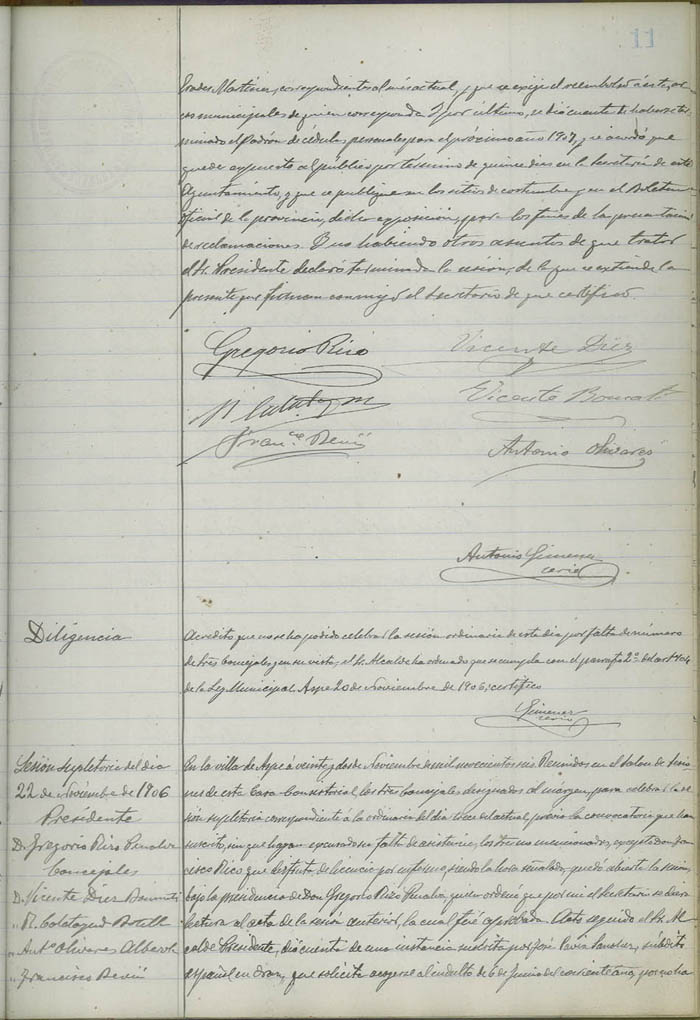 11
Erades Martinez, correspondientes al mes actual, y que se exija el reembolso á este, ar-
cas municipales de quien corresponda. Y por ultimo, se dió cuenta de haberse ter-
minado el Padron de cédulas personales para el próximo año 1907, y se acordó que
quede expuesto al público por término de quince dias en la Secretaria de este
Ayuntamiento, y que se publique en los sitios de costumbre y en el Boletin
oficial de la provincia, dicha exposicion, para los fines de la presentacion
de reclamaciones. Y no habiendo otros asuntos de que tratar
el Sr. Presidente declaró terminada la sesion, de la que se extiende la
presente que firman conmigo el Secretario de que certifico.
Gregorio Rico
Vicente Diez
Vicente
Franco
Antonio Olivares
Antonio Gimenez
Diligencia
Acredito que no se ha podido celebrar la sesión ordinaria de este dia por falta de número
de tres Concejales, y en su vista, el Sr. Alcalde ha ordenado que se cumpla con el parrafo 2º del art
de la Ley Municipal. Aspe 20 de Noviembre de 1906, certifico
Gimenez
Sesión supletoria del dia
22 de Noviembre de 1906
Presidente
D. Gregorio Rico Penalva
Concejales
D. Vicente Diez
" M. Calatayud Botella
" Antº Olivares
" Francisco
En la villa de Aspe á veinte y dos de Noviembre de mil novecientos seis. Reunidos en el salon de sesio-
nes de esta Casa-Consistorial los tres Concejales designados al márgen, para celebrar la se-
sión supletoria correspondiente á la ordinaria del dia trece del actual previa la convocatoria que han
suscrito, sin que hayan excusado su falta de asistencia, los tres no mencionados, excepto don Fran-
cisco Rico que disfruta de licencia por enfermo, siendo la hora señalada, quedó abierta la sesión,
bajo la presidencia de Don Gregorio Rico Penalva, quien ordenó que por mi el Secretario se diera
lectura al acta de la sesión anterior, la cual fué aprobada. Acto seguido el Sr. Al-
calde Presidente, dió cuenta de una instancia suscrita por José Pavia Sanchez, súbdito
español en Oran, que solicita acogerse al indulto de 6 de Junio del corriente año, por no ha